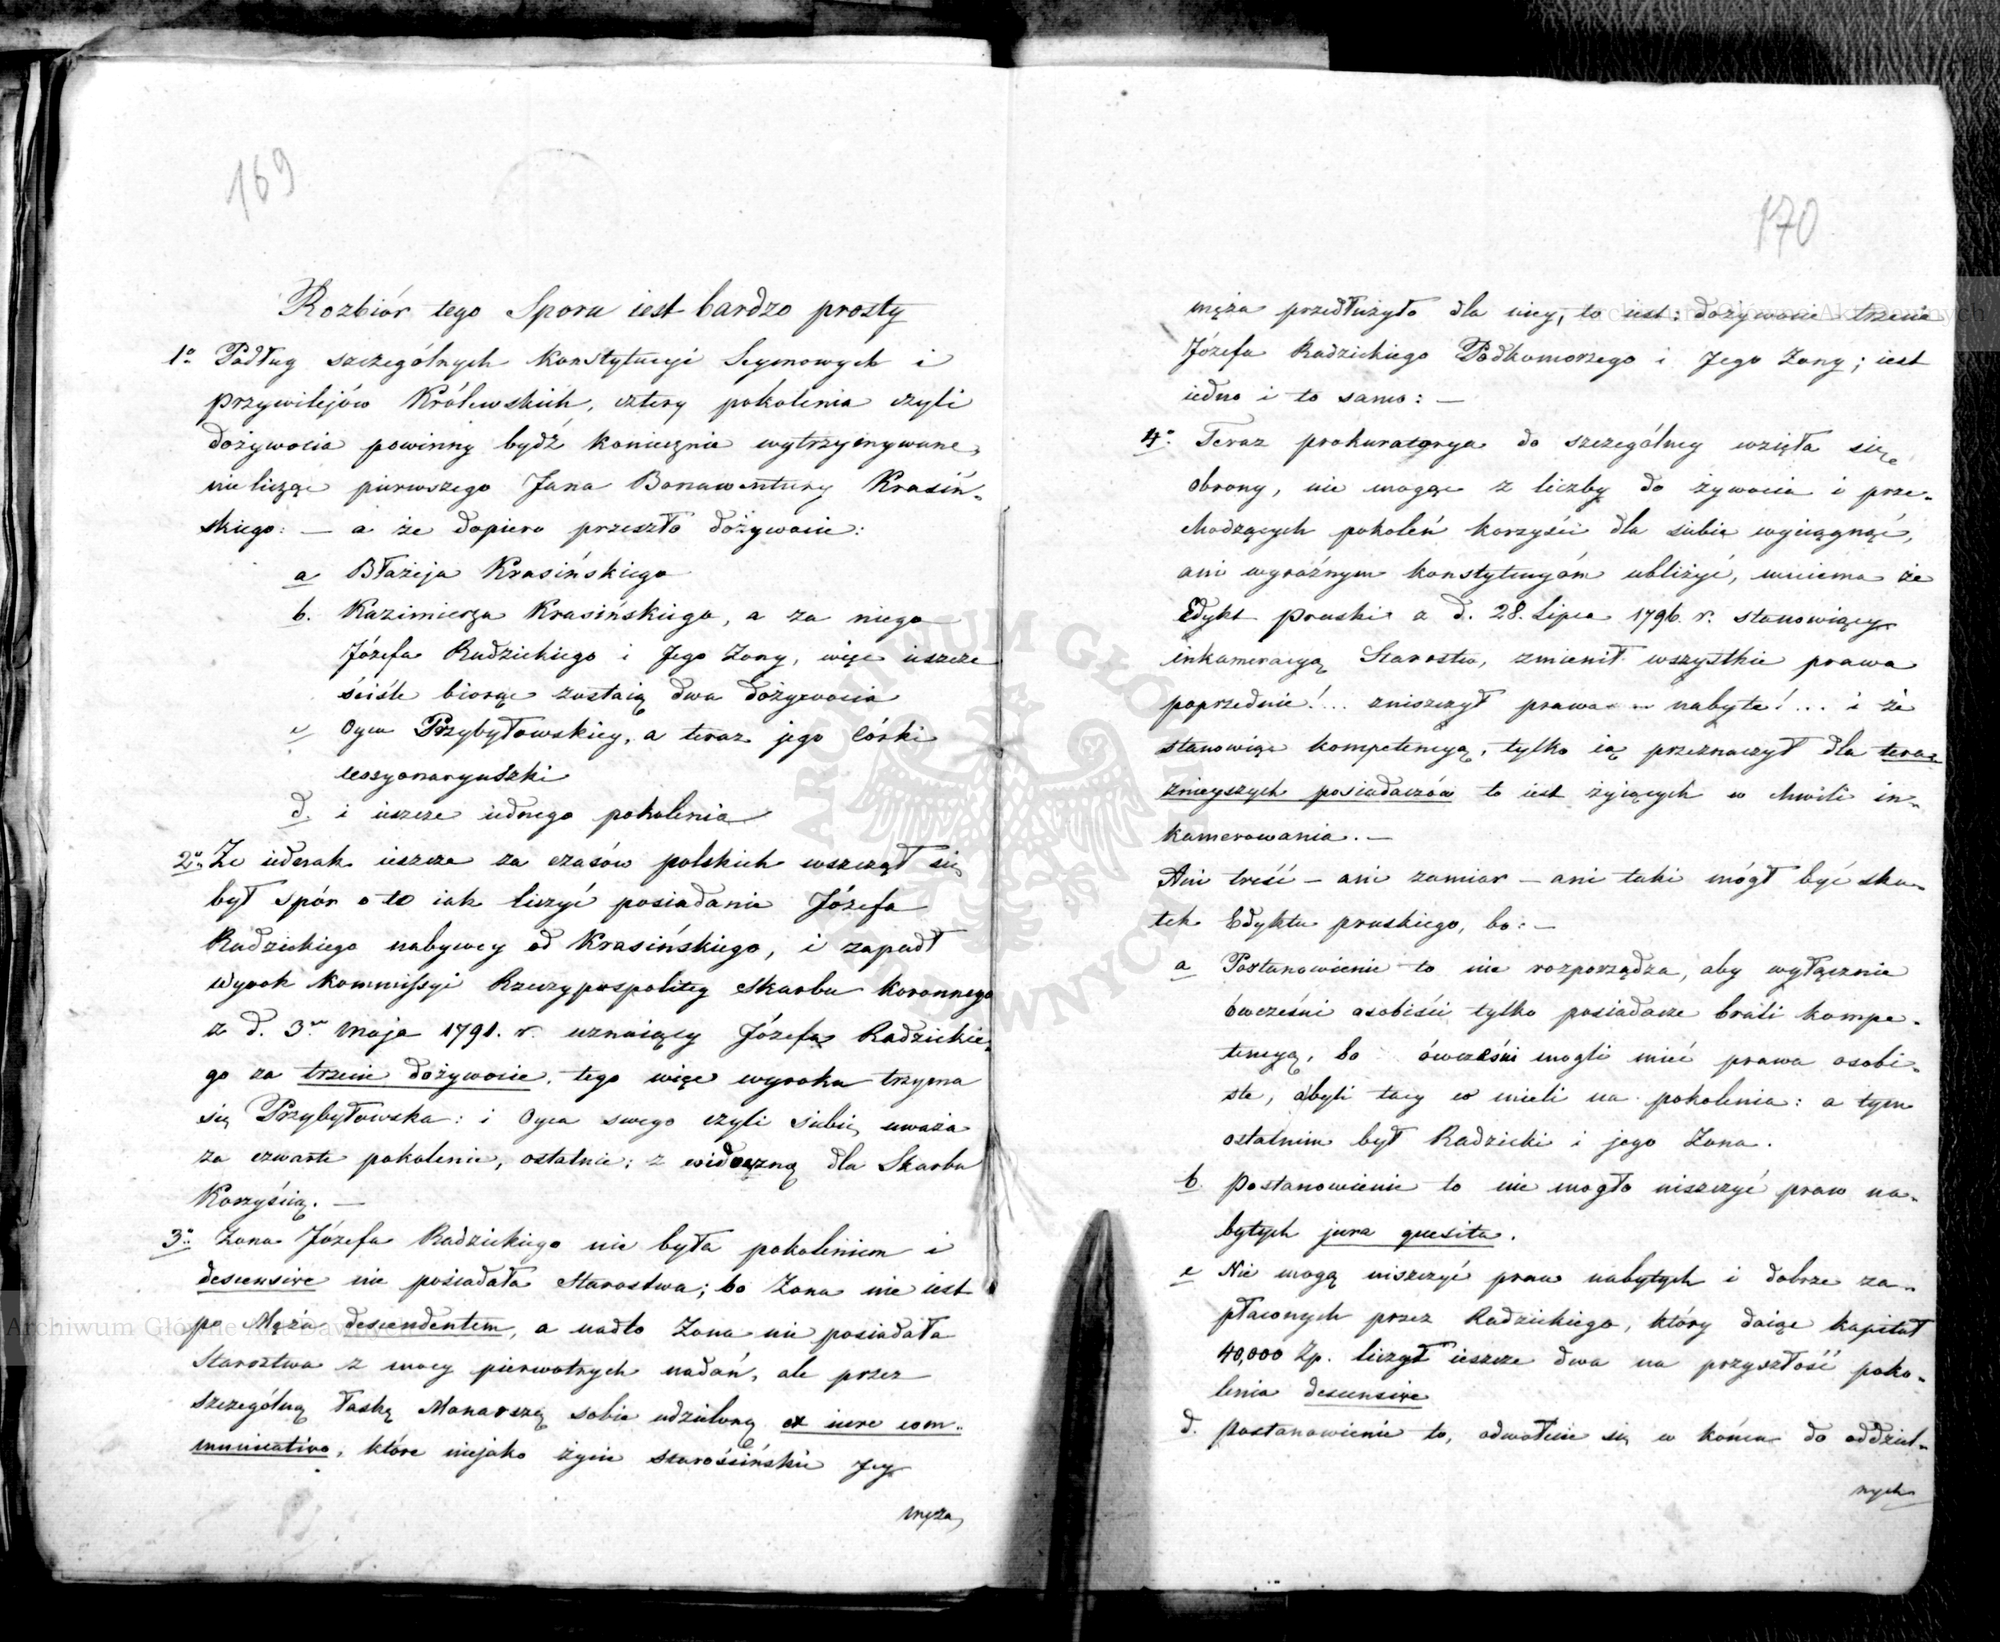 169
Rozbiór tego Sporu iest bardzo prosty
1o Podług szczególnych Konstytucyi Seymowych i
przywilejów Królewskich, cztery pokolenia czyli
dożywocia powinny bydź koniecznie wytrzymywane,
nie licząc pierwszego Jana Bonawentury Krasiń-
skiego: — a że dopiero przeszło dożywocie:
a Błażeja Krasińskiego
b. Kazimierza Krasińskiego, a za niego
Józefa Radzickiego i Jego Żony, więc ieszcze
ściśle biorąc zostaią dwa dożywocia
c Oyca Przybyłowskiey, a teraz jego Córki
cessyonaryuszki
d. i ieszcze iednego pokolenia
2o Że iednak ieszcze za czasów polskich wszczął się
był spór o to iak liczyć posiadanie Józefa
Radzickiego nabywcy od Krasińskiego, i zapadł
Wyrok Kommissyi Rzeczypospolitey Skarbu Koronnego
z d. 3go Maja 1791. r. uznaiący Józefa Radzickie-
go za trzecie dożywocie, tego więc wyroku trzyma
się Przybyłowska: i Oyca swego czyli siebie uważa
za czwarte pokolenie, ostatnie; z widoczną dla Skarbu
Korzyścią. —
3o Żona Józefa Radzickiego nie była pokoleniem i
descensive nie posiadała Starostwa; bo Żona nie iest
po Mężu descendentem, a nadto Żona nie posiadała
Starostwa z mocy pierwotnych nadań, ale przez
szczególną łaskę Monarszą sobie udzieloną ex iure com-
municativo, które niejako życie starościńskie Jey
męża
170
męża przedłużyło dla niey, to iest: dożywocie trzecie
Józefa Radzickiego Podkomorzego i Jego Żony; iest
iedno i to samo: —
4o Teraz prokuratorya do szczególney wzięła się
obrony, nie mogąc z liczby do żywocia i prze-
chodzących pokoleń korzyści dla siebie wyciągnąć,
ani wyraźnym konstytucyom ubliżyć, mniema że
Edykt pruski z d. 28. Lipca 1796. r. stanowiący
inkameracyą Starostw, zmienił wszystkie prawa
poprzednie!... zniszczył prawa nabyte!... i że
stanowiąc kompetencyą, tylko ią przeznaczył dla tera-
znieyszych posiadaczów to iest żyiących w chwili in-
kamerowania. —
Ani treść — ani zamiar — ani taki mógł być sku-
tek Edyktu pruskiego, bo: —
a Postanowienie to nie rozporządza, aby wyłącznie
ówcześni osobiści tylko posiadacze brali kompe-
tencyą, bo ówcześni mogli mieć prawa osobi-
ste, byli tacy co mieli na pokolenia: a tym
ostatnim był Radzicki i jego Żona.
b. Postanowienie to nie mogło niszczyć praw na-
bytych jura quesita.
c Nie mogą niszczyć praw nabytych i dobrze za-
płaconych przez Radzickiego, który daiąc kapitał
40,000 Zp. liczył ieszcze dwa na przyszłość poko-
lenia descensive
d. Postanowienie to, odwołuie się w końcu do oddziel-
nych
Archiwum Główne Akt Dawnych
ARCHIWUM GŁÓWNE AKT DAWNYCH
Archiwum Główne Akt Dawnych